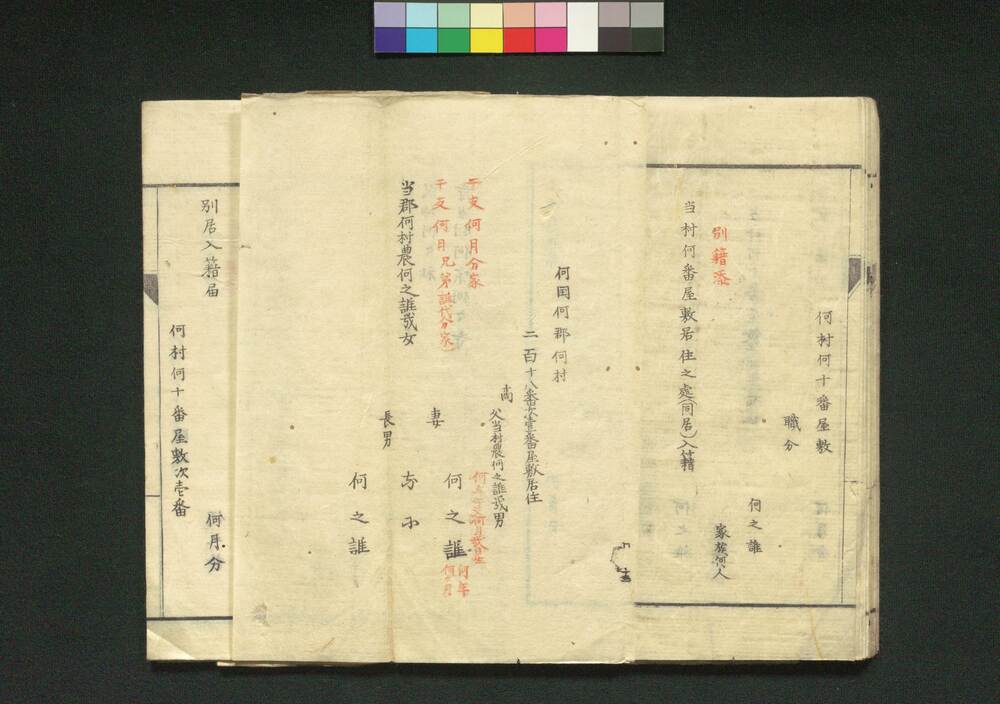 何村何十番屋敷
職分
何之誰
家族何人
別籍添
当村何番屋敷居住之處(同居)入籍
何国何郡何村
二百十八番次壹番屋敷居住
商
父当村農何之誰弐男
干支何月分家
何之誰
何年
何月
干支何月兄弟誰代分家
妻
当郡何村農何之誰弐女
長男
何之誰
別居入籍届
何村何十番屋敷次壱番
何月分